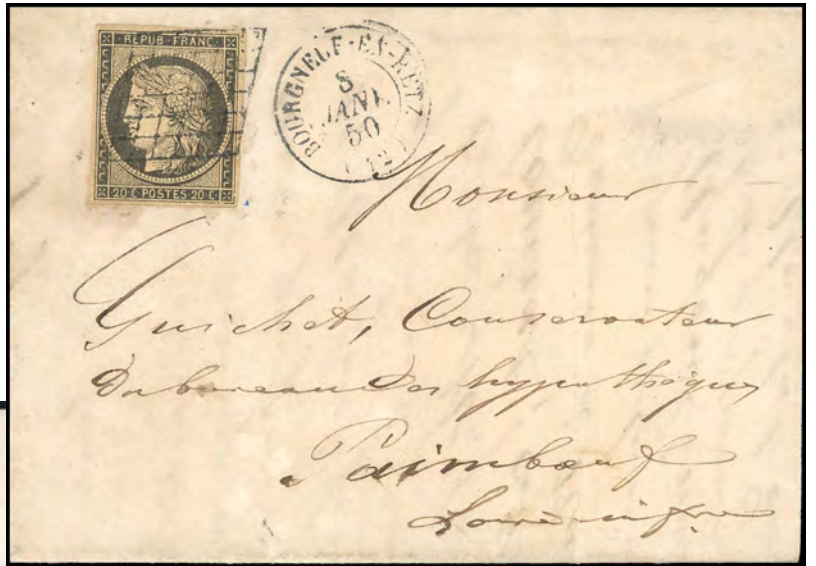 REPUB·FRANC·
20·C·POSTES·20·C
BOURGNEUF-EN-RETZ
8
JANV.
50
(42)
Monsieur
Guichet, Conservateur
du bureau des hypothèques
Paimbœuf
Loire inf.re